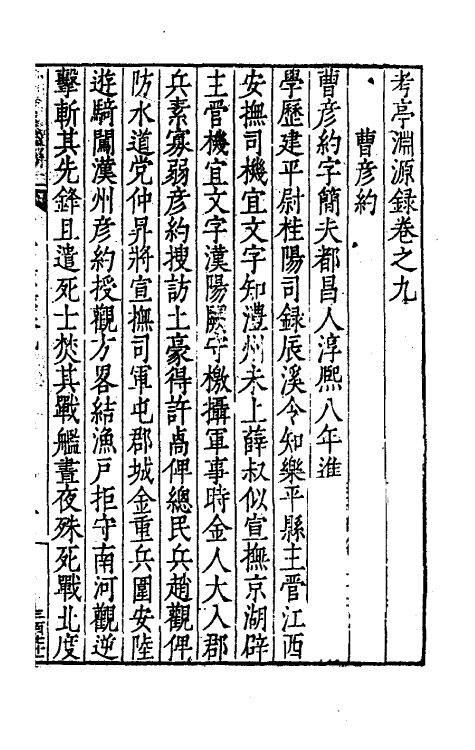 考亭淵源録卷之九
曹彦約
曹彦約字簡夫都昌人淳熙八年進
學歷建平尉桂陽司録辰溪令知樂平縣主管江西
安撫司機宜文字知澧州未上薛叔似宣撫京湖辟
主管機宜文字漢陽闕守檄攝軍事時金人大入郡
兵素寡弱彦約搜訪土豪得許卨俾總民兵趙觀俾
防水道党仲昇將宣撫司軍屯郡城金重兵圍安陸
遊騎闖漢州彦約授觀方畧結漁戸拒守南河觀逆
擊斬其先鋒且遣死士焚其戰艦晝夜殊死戰北度